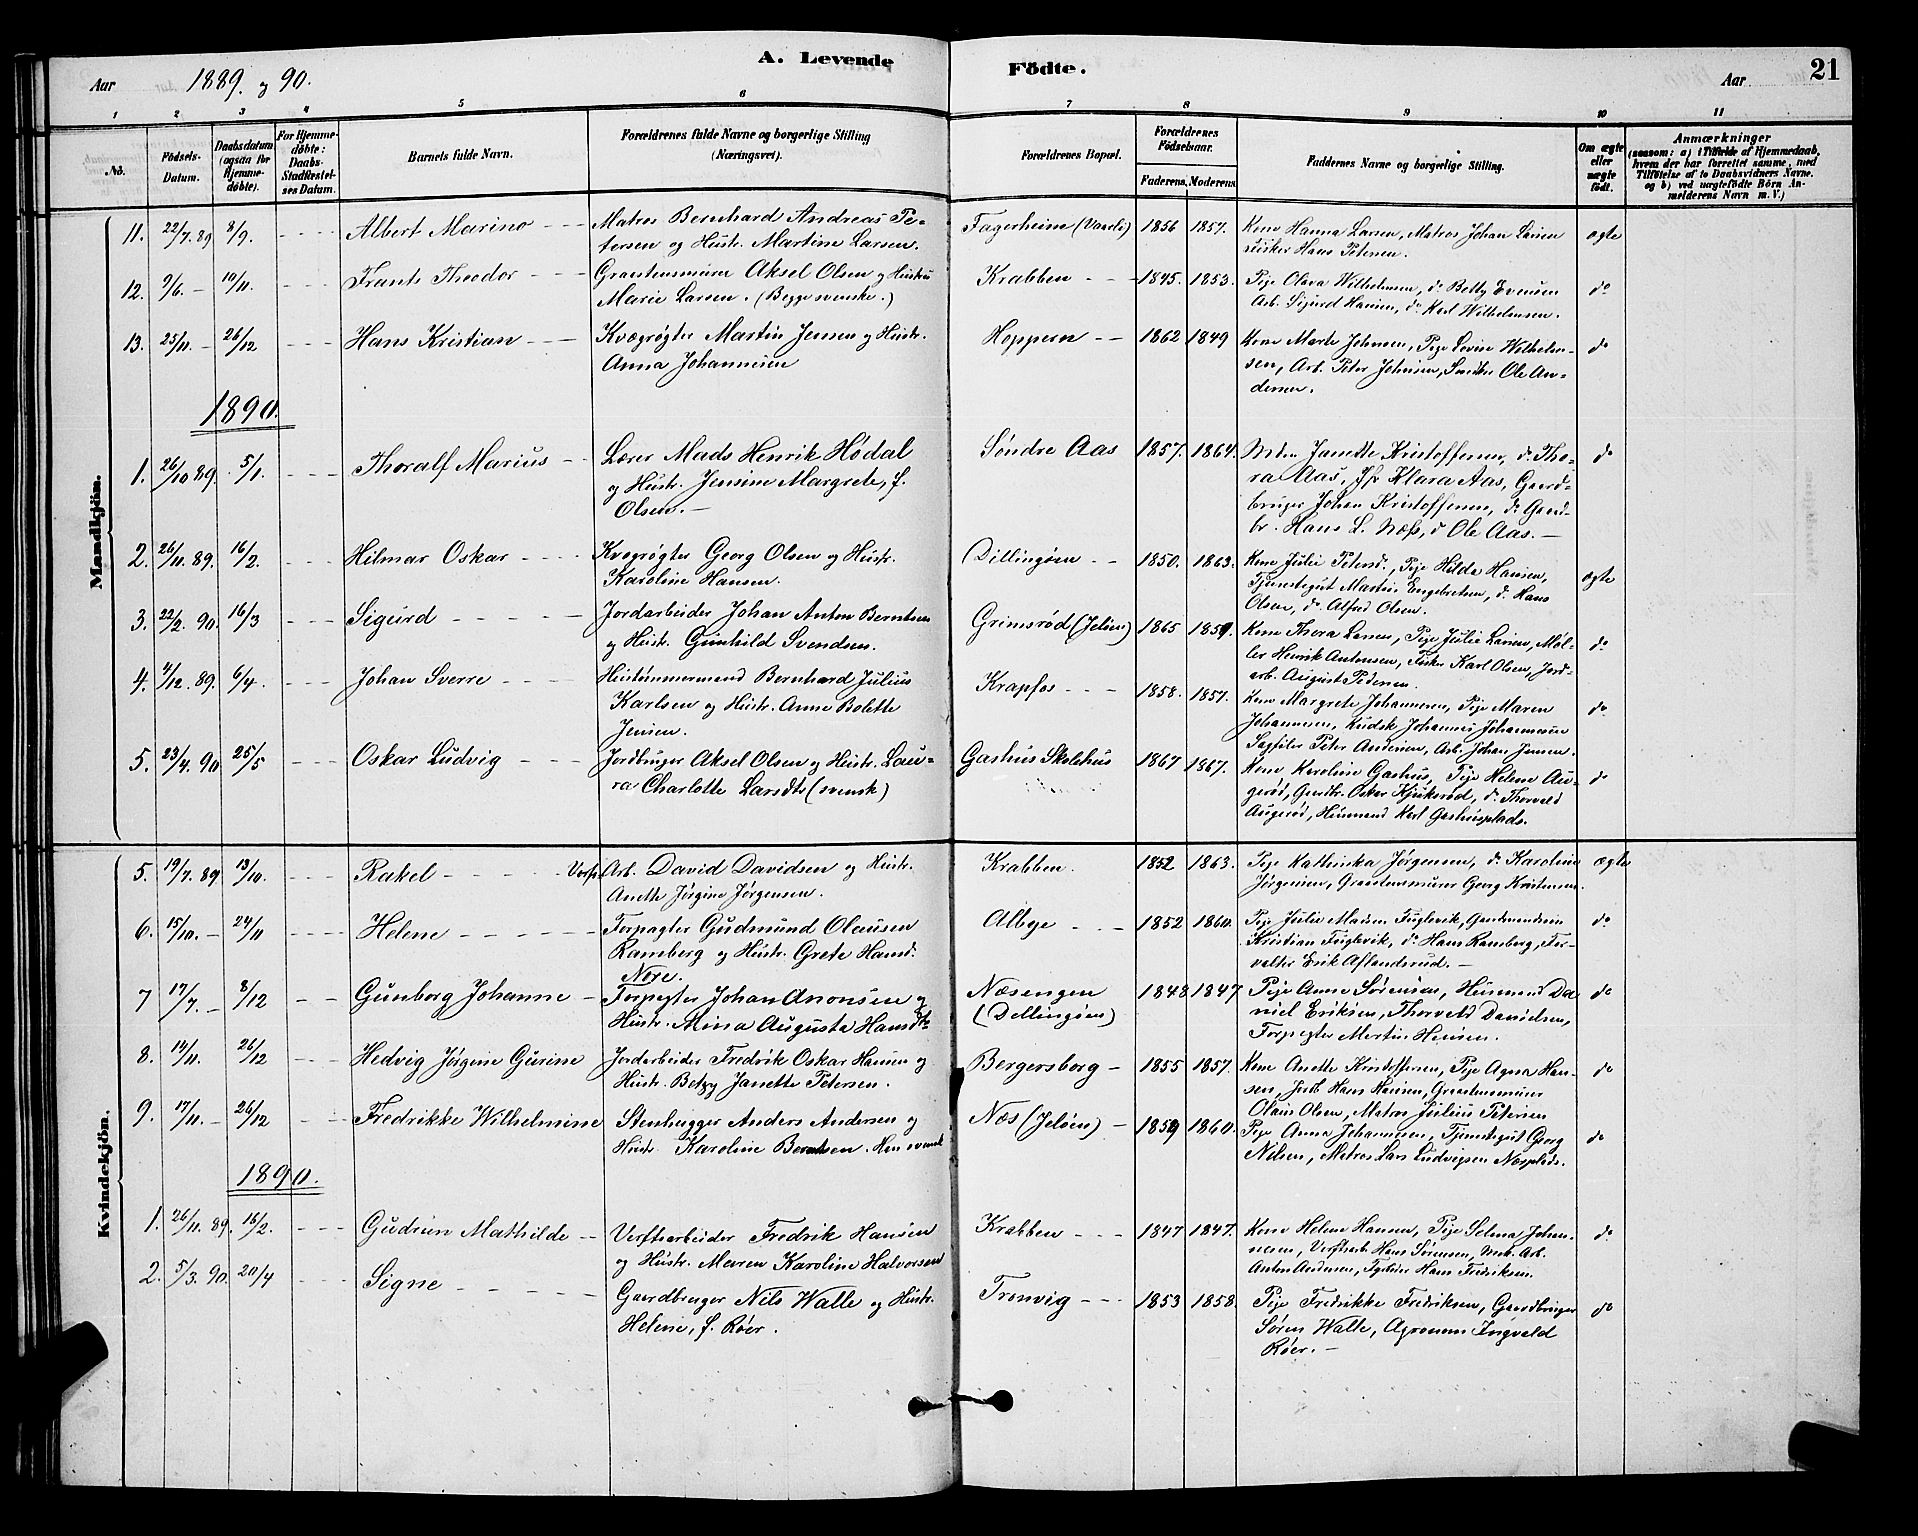 Aar 1889. og 90. A. Levende Födte. Aar 21
1 2 3 4 5 6 7 8 9 10 11
No. Födsels-Datum. Daabsdatum (ogsaa for Hjemmedöbte). For Hjemmedöbte: Daabs-Stadfæstelses Datum. Barnets fulde Navn. Forældrenes fulde Navne og borgerlige Stilling (Næringsvei). Forældrenes Bopæl. Forældrenes Födselsaar. Faderens. Moderens. Faddernes Navne og borgerlige Stilling. Om ægte eller uægte födt. Anmærkninger
(saasom: a) i Tilfælde af Hjemmedaab,
hvem der har forrettet samme, med
Tilföielse af to Daabsvidners Navne.
og b) ved uægtefödte Börn An-
melderens Navn m. V.)
Mandkjön.
11. 22/7. 89 8/9. Albert Marino Matros Bernhard Andreas Pe-
tersen og Hustr. Martine Larsen. Fagerheim (Vanse) 1856 1857. Kone Hanna Larsen, Matros Johan Larsen
Hans Petersen. ægte
12. 9/6. 10/11. Frants Theodor Graastensmurer Aksel Olsen og Hustru
Marie Larsen. (Begge svenske.) Krabben 1845. 1853. Pige Olava Wilhelmsen, do Betty Evensen
Arb. Sigurd Hansen, do Karl Wilhelmsen. do
13. 25/11. 26/12 Hans Kristian Kvægrøgter Martin Jensen og Hustr.
Anna Johannesen Hoppern 1862 1849 Kone Marte Johnsen, Pige Lovise Wilhelm-
sen, Arb. Peter Johnsen, Ole An-
dersen. do
1890.
1. 26/10 89. 5/1. Thoralf Marius Lærer Mads Henrik Hødal
og Hustr. Jensine Margrete, f.
Olsen. Søndre Aas 1857. 1864. Kristoffersen, do Tho-
ra Aas, Jfr Klara Aas, Gaard-
bruger Johan Kristoffersen, do Gaard-
br. Hans L. Næss, do Ole Aas. do
2. 26/11. 89. 16/2. Hilmar Oskar Kvægrøgter Georg Olsen og Hustr.
Karoline Hansen. Dillingøen 1850. 1863. Kone Julie Petersd., Pige Hilda Hansen,
Tjenestegut Martin Engebretsen, do Hans
Olsen, do Alfred Olsen. ægte
3. 22/2. 90. 16/3 Sigurd Jordarbeider Johan Anton Berntsen
og Hustr. Gunhild Svendsen. Grimsrød (Jeløen) 1865 1859. Kone Thora Larsen, Pige Julie Larsen, Møl-
ler Henrik Antonsen, Fisker Karl Olsen, Jord-
arb. August Pedersen. do
4. 4/12. 89. 6/4. Johan Sverre Hustømmermand Bernhard Julius
Karlsen og Hustr. Anne Bolette
Jensen. Krapfos 1858. 1857. Kone Margrete Johannesen, Pige Maren
Johannesen, Kudsk Johannes Johannesen
Sagfiler Peter Andersen, Arb. Johan Jensen. do
5. 23/4. 90 25/5 Oskar Ludvig Jordbruger Aksel Olsen og Hustr. Lau-
ra Charlotte Larsdtr (svensk) Gashus Skolehus 1867 1867. Kone Karoline Gashus, Pige Helene Au-
gerød, Gaardbr. Oskar Kjuksrød, do Thorvald
Augerød, Husmand Karl Gashusplads. do
Kvindekjön.
5. 19/7. 89 13/10. Rakel Arb. David Davidsen og Hustr.
Anette Jørgine Jørgensen. Krabben. 1852 1863. Pige Kathinka Jørgensen, do Karoline
Jørgensen, Graastensmurer Georg Kristensen. ægte
6. 15/10. 24/11 Helene Forpagter Gudmund Olausen
Ramberg og Hustr. Grete Hansd.
Nore. Albye 1852 1860. Pige Julie Madsen Fuglevik, Gaardmændene
Kristian Fuglevik, do Hans Ramberg, For-
valter Erik Aflandsrud. do
7 17/7. 8/12 Gunborg Johanne Forpagter Johan Aronsen og
Hustr. Mina Augusta Hansdtr Næsengen
(Dillingøen) 1848 1847 Pige Anna Sørensen, Husmand Da-
niel Eriksen, Thorvald Davidsen,
Forpagter Martin Hansen. do
8. 14/11. 26/12 Hedvig Jørgine Gurine Jordarbeider Fredrik Oskar Hansen og
Hustr. Betzy Janette Petersen. Bergersborg 1855 1857. Kone Anette Kristoffersen, Pige Agna Han-
sen, Jordb. Hans Hansen, Graastensmurer
Olaus Olsen, Matros Julius Petersen do
9. 17/11. 26/12 Fredrikke Wilhelmine Stenhugger Anders Andersen og
Hustr. Karoline Berntsen. Han svensk Næs (Jeløen) 1859 1860. Pige Anna Johannesen, Tjenestegut Georg
Nilsen, Matros Lars Ludvigsen Næsplads. do
1890.
1. 26/11. 89. 16/2. Gudrun Mathilde Verftsarbeider Fredrik Hansen
og Hustr. Maren Karoline Halvorsen Krabben 1847 1847. Kone Helene Hansen, Pige Selma Johan-
nesen, Verftsarb. Hans Sørensen, mek. Arb.
Anton Andersen, Hans Fredriksen. do
2. 5/3. 90. 20/4 Signe Gaardbruger Nils Walle og Hustr.
Helene, f. Røer. Tronvig 1853 1858. Pige Fredrikke Fredriksen, Gaardbruger
Søren Walle, Agronom Ingvald
Røer. do